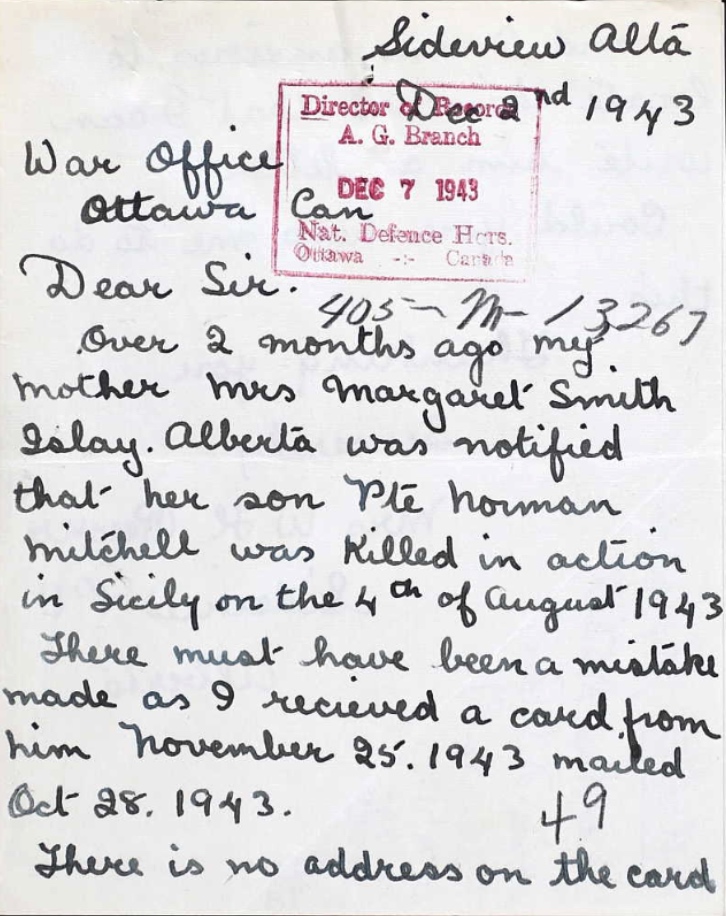 Sideview Alta
Dec 2nd 1943
Director of Records
A. G. Branch
DEC 7 1943
Nat. Defence Hqrs.
Ottawa -:- Canada
War Office
Ottawa Can
Dear Sir.
405-M-13267
Over 2 months ago my
mother Mrs Margaret Smith
Islay. Alberta was notified
that her son Pte Norman
Mitchell was killed in action
in Sicily on the 4th of August 1943
There must have been a mistake
made as I recieved a card from
him November 25. 1943 mailed
Oct 28. 1943.
49
There is no address on the card